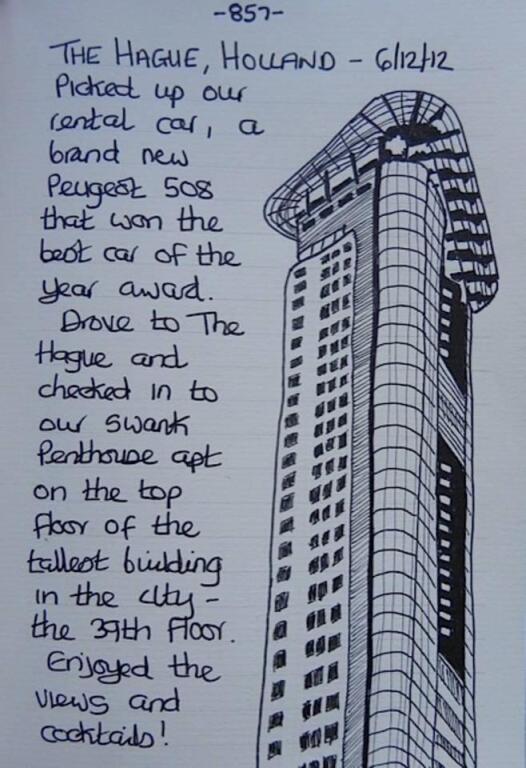 -857-
THE HAGUE, HOLLAND - 6/12/12
Picked up our
rental car, a
brand new
Peugeot 508
that won the
best car of the
year award.
Drove to The
Hague and
checked in to
our swank
Penthouse apt
on the top
floor of the
tallest building
in the city -
the 39th Floor.
Enjoyed the
views and
cocktails!